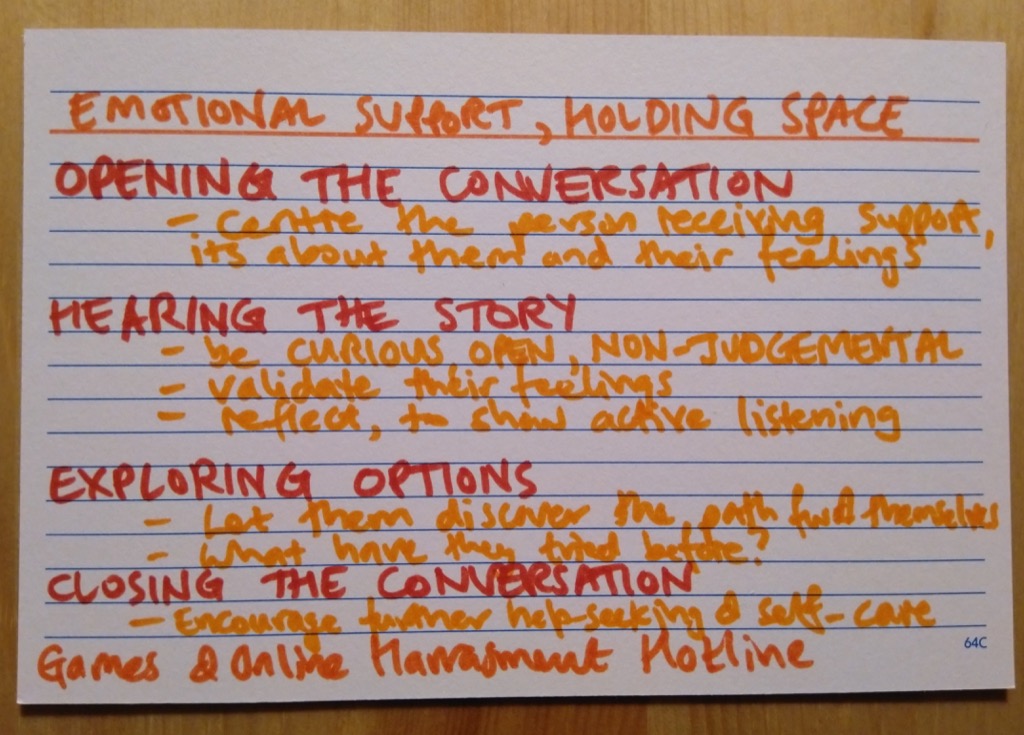 EMOTIONAL SUPPORT, HOLDING SPACE
OPENING THE CONVERSATION
- centre the person receiving support,
its about them and their feelings
HEARING THE STORY
- be CURIOUS OPEN, NON-JUDGEMENTAL
- validate their feelings
- reflect, to show active listening
EXPLORING OPTIONS
- Let them discover the path fwd themselves
- What have they tried before?
CLOSING THE CONVERSATION
- Encourage further help-seeking & self-care
64C
Games & Online Harrasment Hotline